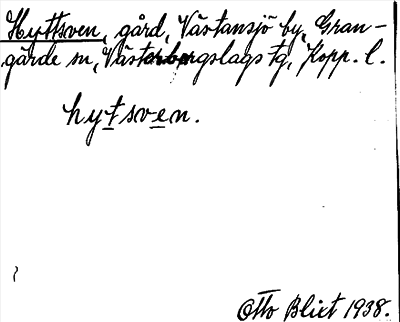 Hyttsven, gård, Västansjö by, Gran-
gärde sn, Västerbergslags tg, Kopp. l.
hytsven.
Otto Blixt 1938.